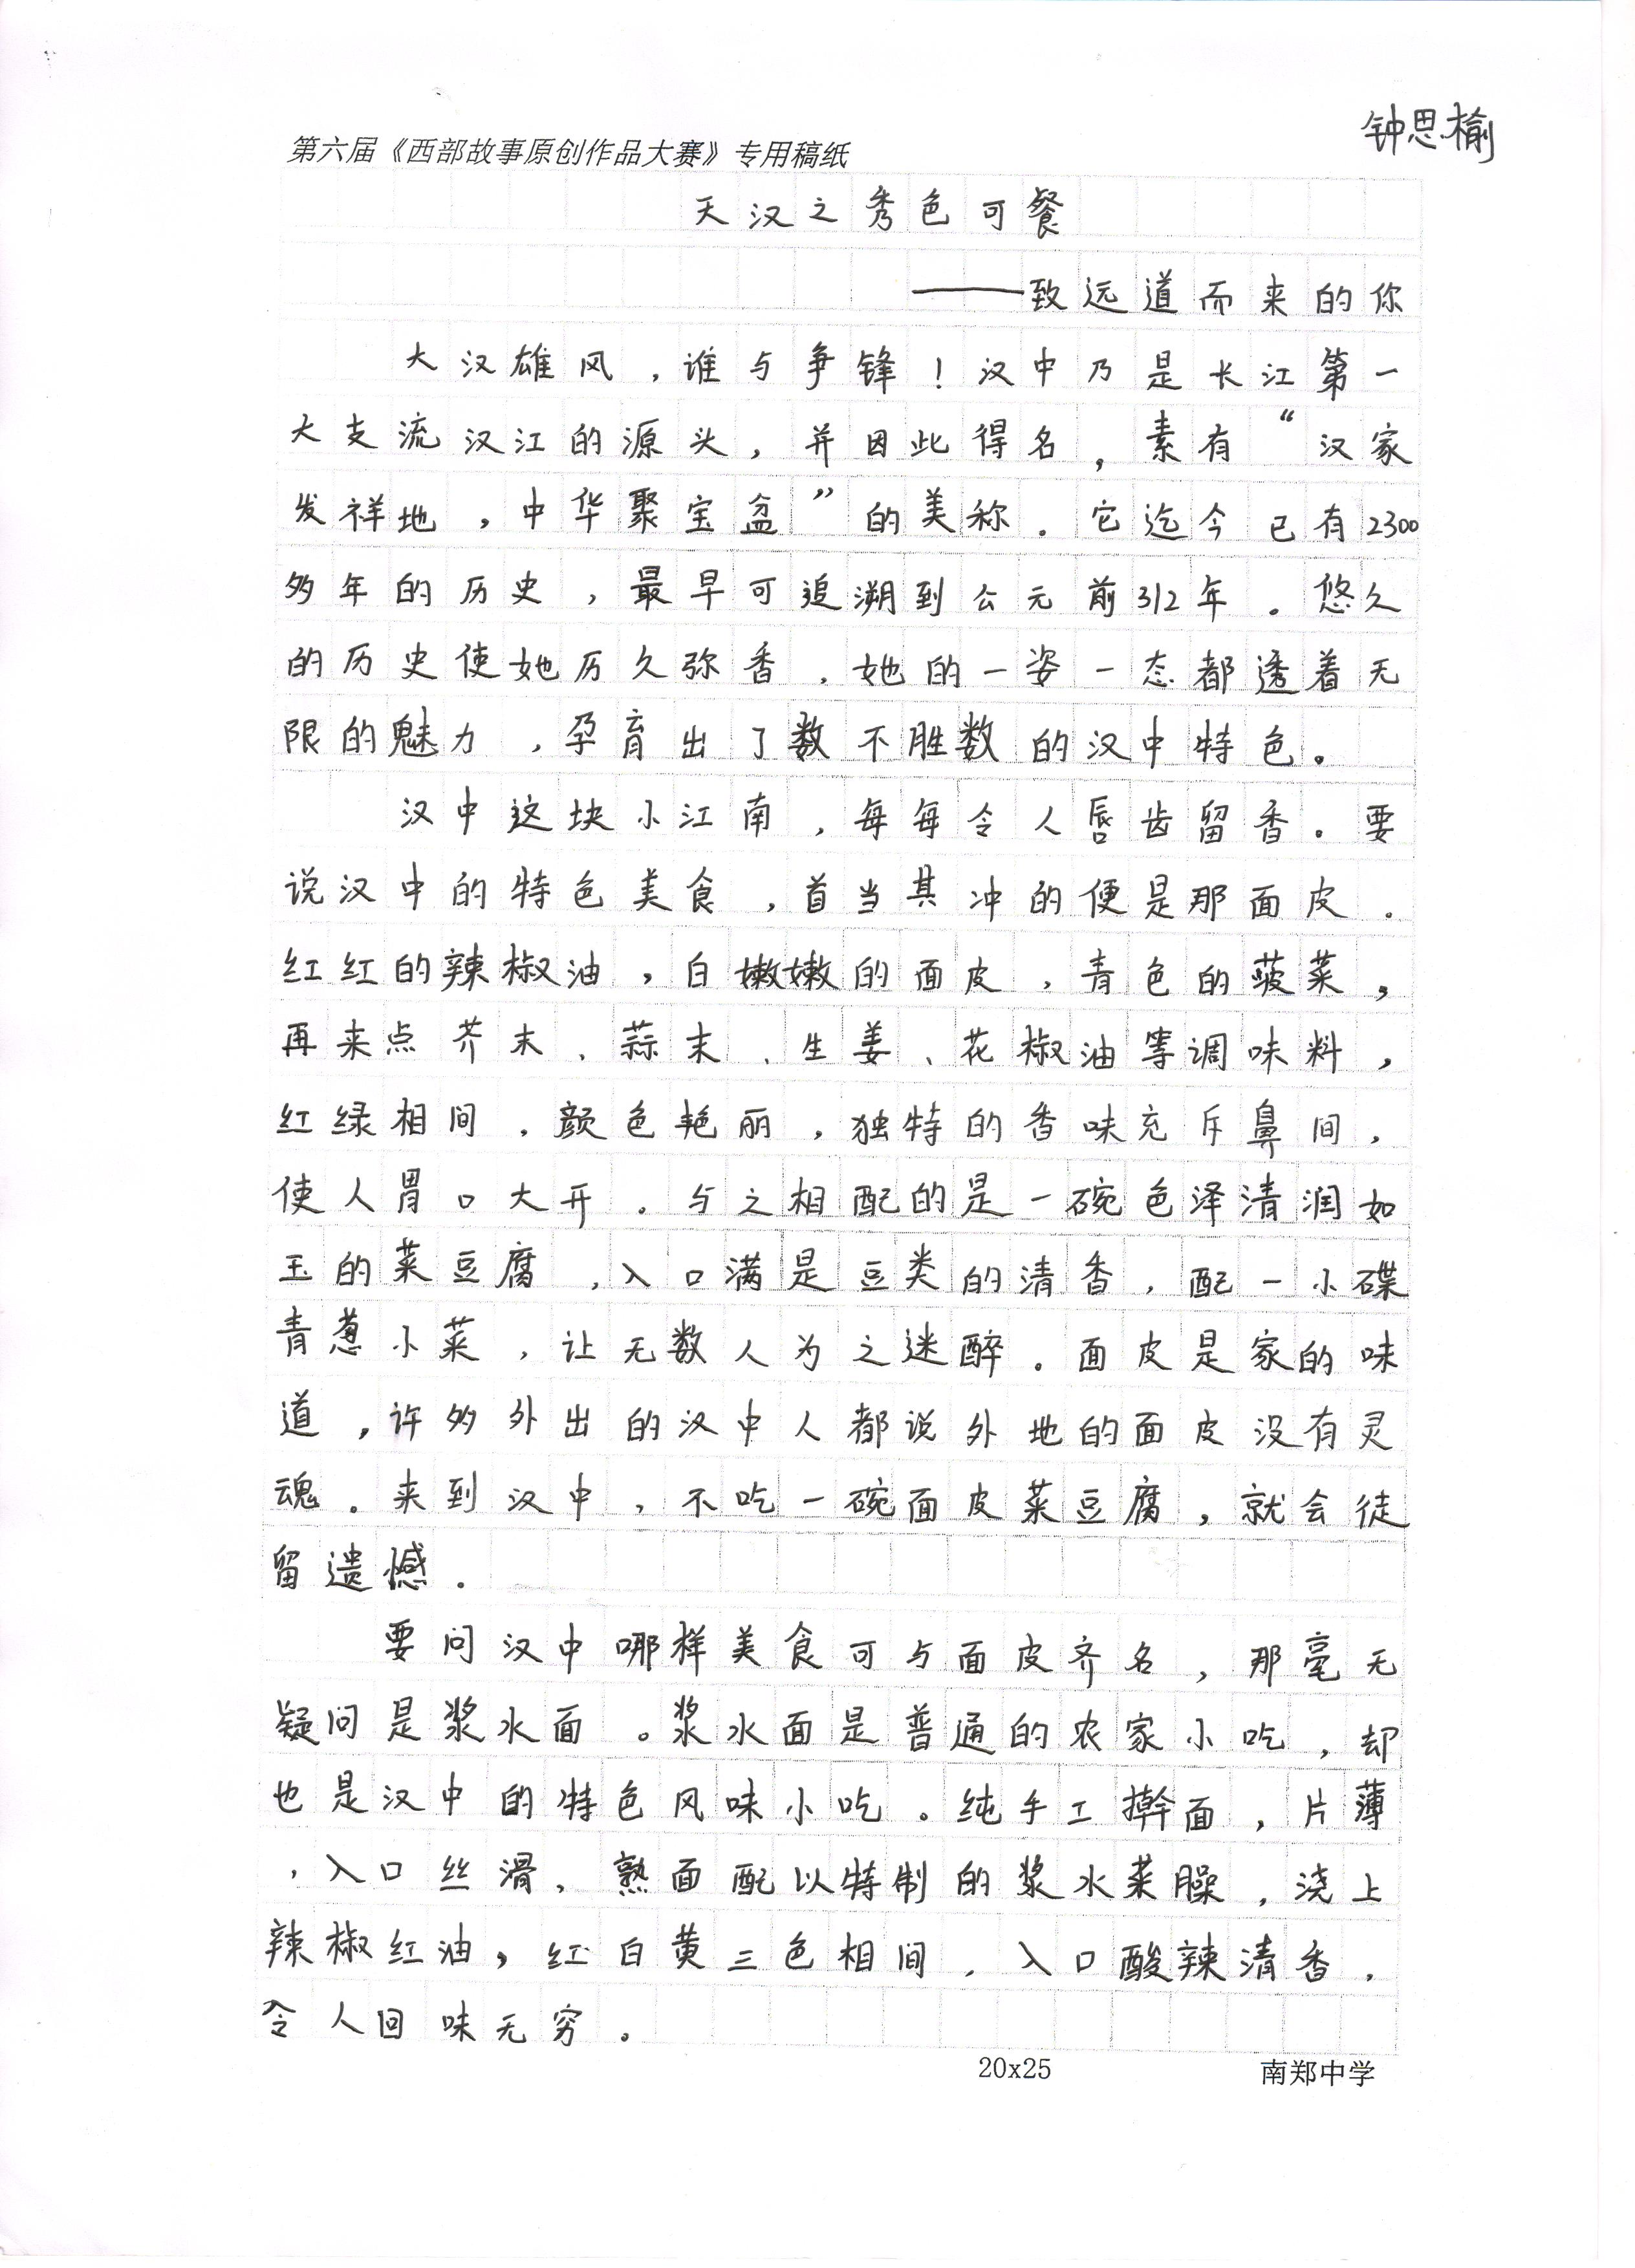 钟思榆
第六届《西部故事原创作品大赛》专用稿纸
天汉之秀色可餐
——致远道而来的你
大汉雄风，谁与争锋！汉中乃是长江第一
大支流汉江的源头，并因此得名，素有“汉家
发祥地，中华聚宝盆”的美称。它迄今已有2300
多年的历史，最早可追溯到公元前312年。悠久
的历史使她历久弥香，她的一姿一态都透着无
限的魅力，孕育出了数不胜数的汉中特色。
汉中这块小江南，每每令人唇齿留香。要
说汉中的特色美食，首当其冲的便是那面皮。
红红的辣椒油，白嫩嫩的面皮，青色的菠菜，
再来点芥末、蒜末、生姜、花椒油等调味料，
红绿相间，颜色艳丽，独特的香味充斥鼻间，
使人胃口大开。与之相配的是一碗色泽清润如
玉的菜豆腐，入口满是豆类的清香，配一小碟
青葱小菜，让无数人为之迷醉。面皮是家的味
道，许多外出的汉中人都说外地的面皮没有灵
魂。来到汉中，不吃一碗面皮菜豆腐，就会徒
留遗憾。
要问汉中哪样美食可与面皮齐名，那毫无
疑问是浆水面。浆水面是普通的农家小吃，却
也是汉中的特色风味小吃。纯手工擀面，片薄
，入口丝滑，熟面配以特制的浆水菜臊，浇上
辣椒红油，红白黄三色相间，入口酸辣清香，
令人回味无穷。
20x25
南郑中学